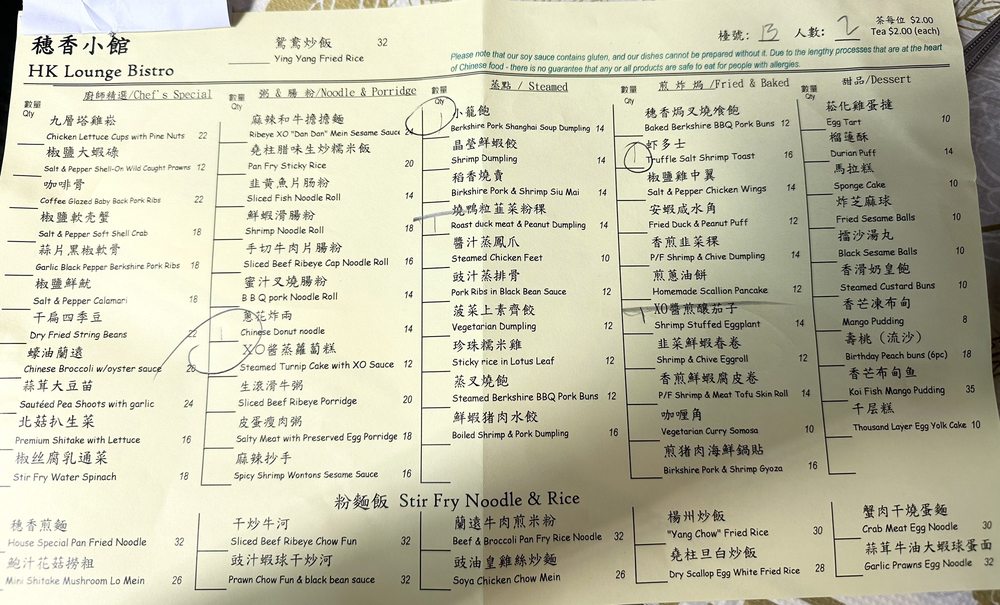 穗香小館
HK Lounge Bistro
鴛鴦炒飯 32
Ying Yang Fried Rice
檯號: B 人數: 2
茶每位 $2.00
Tea $2.00 (each)
Please note that our soy sauce contains gluten, and our dishes cannot be prepared without it. Due to the lengthy processes that are at the heart
of Chinese food - there is no guarantee that any or all products are safe to eat for people with allergies.
數量 Qty
廚師精選/Chef's Special
九層塔雞崧
Chicken Lettuce Cups with Pine Nuts 22
椒鹽大蝦碌
Salt & Pepper Shell-On Wild Caught Prawns 12
咖啡骨
Coffee Glazed Baby Back Pork Ribs 22
椒鹽軟壳蟹
Salt & Pepper Soft Shell Crab 18
蒜片黑椒軟骨
Garlic Black Pepper Berkshire Pork Ribs 18
椒鹽鮮魷
Salt & Pepper Calamari 18
干扁四季豆
Dry Fried String Beans 22
蠔油蘭遠
Chinese Broccoli w/oyster sauce 20
蒜茸大豆苗
Sautéed Pea Shoots with garlic 24
北菇扒生菜
Premium Shitake with Lettuce 16
椒丝腐乳通菜
Stir Fry Water Spinach 18
數量 Qty
粥 & 腸 粉/Noodle & Porridge
麻辣和牛擔擔麵
Ribeye XO "Dan Dan" Mein Sesame Sauce 24
堯柱腊味生炒糯米飯
Pan Fry Sticky Rice 20
韭黄魚片肠粉
Sliced Fish Noodle Roll 14
鮮蝦滑腸粉
Shrimp Noodle Roll 18
手切牛肉片腸粉
Sliced Beef Ribeye Cap Noodle Roll 16
蜜汁叉燒腸粉
B B Q pork Noodle Roll 14
蔥花炸兩
Chinese Donut noodle 14
XO醬蒸蘿蔔糕
Steamed Turnip Cake with XO Sauce 12
生滾滑牛粥
Sliced Beef Ribeye Porridge 20
皮蛋瘦肉粥
Salty Meat with Preserved Egg Porridge 18
麻辣抄手
Spicy Shrimp Wontons Sesame Sauce 16
數量 Qty
蒸點 / Steamed
小籠飽
Berkshire Pork Shanghai Soup Dumpling 14
晶瑩鮮蝦餃
Shrimp Dumpling 14
稻香燒賣
Birkshire Pork & Shrimp Siu Mai 14
燒鴨粒韮菜粉粿
Roast duck meat & Peanut Dumpling 14
醬汁蒸鳳爪
Steamed Chicken Feet 10
豉汁蒸排骨
Pork Ribs in Black Bean Sauce 12
菠菜上素齊餃
Vegetarian Dumpling 12
珍珠糯米雞
Sticky rice in Lotus Leaf 12
蒸叉燒飽
Steamed Berkshire BBQ Pork Buns 12
鮮蝦猪肉水餃
Boiled Shrimp & Pork Dumpling 16
數量 Qty
煎 炸 焗 /Fried & Baked
穗香焗叉燒餐飽
Baked Berkshire BBQ Pork Buns 12
虾多士
Truffle Salt Shrimp Toast 16
椒鹽雞中翼
Salt & Pepper Chicken Wings 14
安蝦咸水角
Fried Duck & Peanut Puff 12
香煎韭菜粿
P/F Shrimp & Chive Dumpling 14
煎蔥油餅
Homemade Scallion Pancake 12
XO醬煎釀茄子
Shrimp Stuffed Eggplant 14
韭菜鮮蝦春卷
Shrimp & Chive Eggroll 12
香煎鮮蝦腐皮卷
P/F Shrimp & Meat Tofu Skin Roll 14
咖喱角
Vegetarian Curry Somosa 10
煎猪肉海鮮鍋貼
Birkshire Pork & Shrimp Gyoza 16
數量 Qty
甜品/Dessert
崧化雞蛋撻
Egg Tart 10
榴莲酥
Durian Puff 14
馬拉糕
Sponge Cake 10
炸芝麻球
Fried Sesame Balls 10
擂沙湯丸
Black Sesame Balls 10
香滑奶皇飽
Steamed Custard Buns 10
香芒凍布甸
Mango Pudding 8
壽桃（流沙）
Birthday Peach buns (6pc) 18
香芒布甸鱼
Koi Fish Mango Pudding 35
千层糕
Thousand Layer Egg Yolk Cake 10
粉麵飯 Stir Fry Noodle & Rice
穗香煎麵
House Special Pan Fried Noodle 32
鮑汁花菇撈粗
Mini Shitake Mushroom Lo Mein 26
干炒牛河
Sliced Beef Ribeye Chow Fun 32
豉汁蝦球干炒河
Prawn Chow Fun & black bean sauce 32
蘭遠牛肉煎米粉
Beef & Broccoli Pan Fry Rice Noodle 32
豉油皇雞絲炒麵
Soya Chicken Chow Mein 26
楊州炒飯
"Yang Chow" Fried Rice 30
堯柱旦白炒飯
Dry Scallop Egg White Fried Rice 28
蟹肉干燒蛋麵
Crab Meat Egg Noodle 30
蒜茸牛油大蝦球蛋面
Garlic Prawns Egg Noodle 32